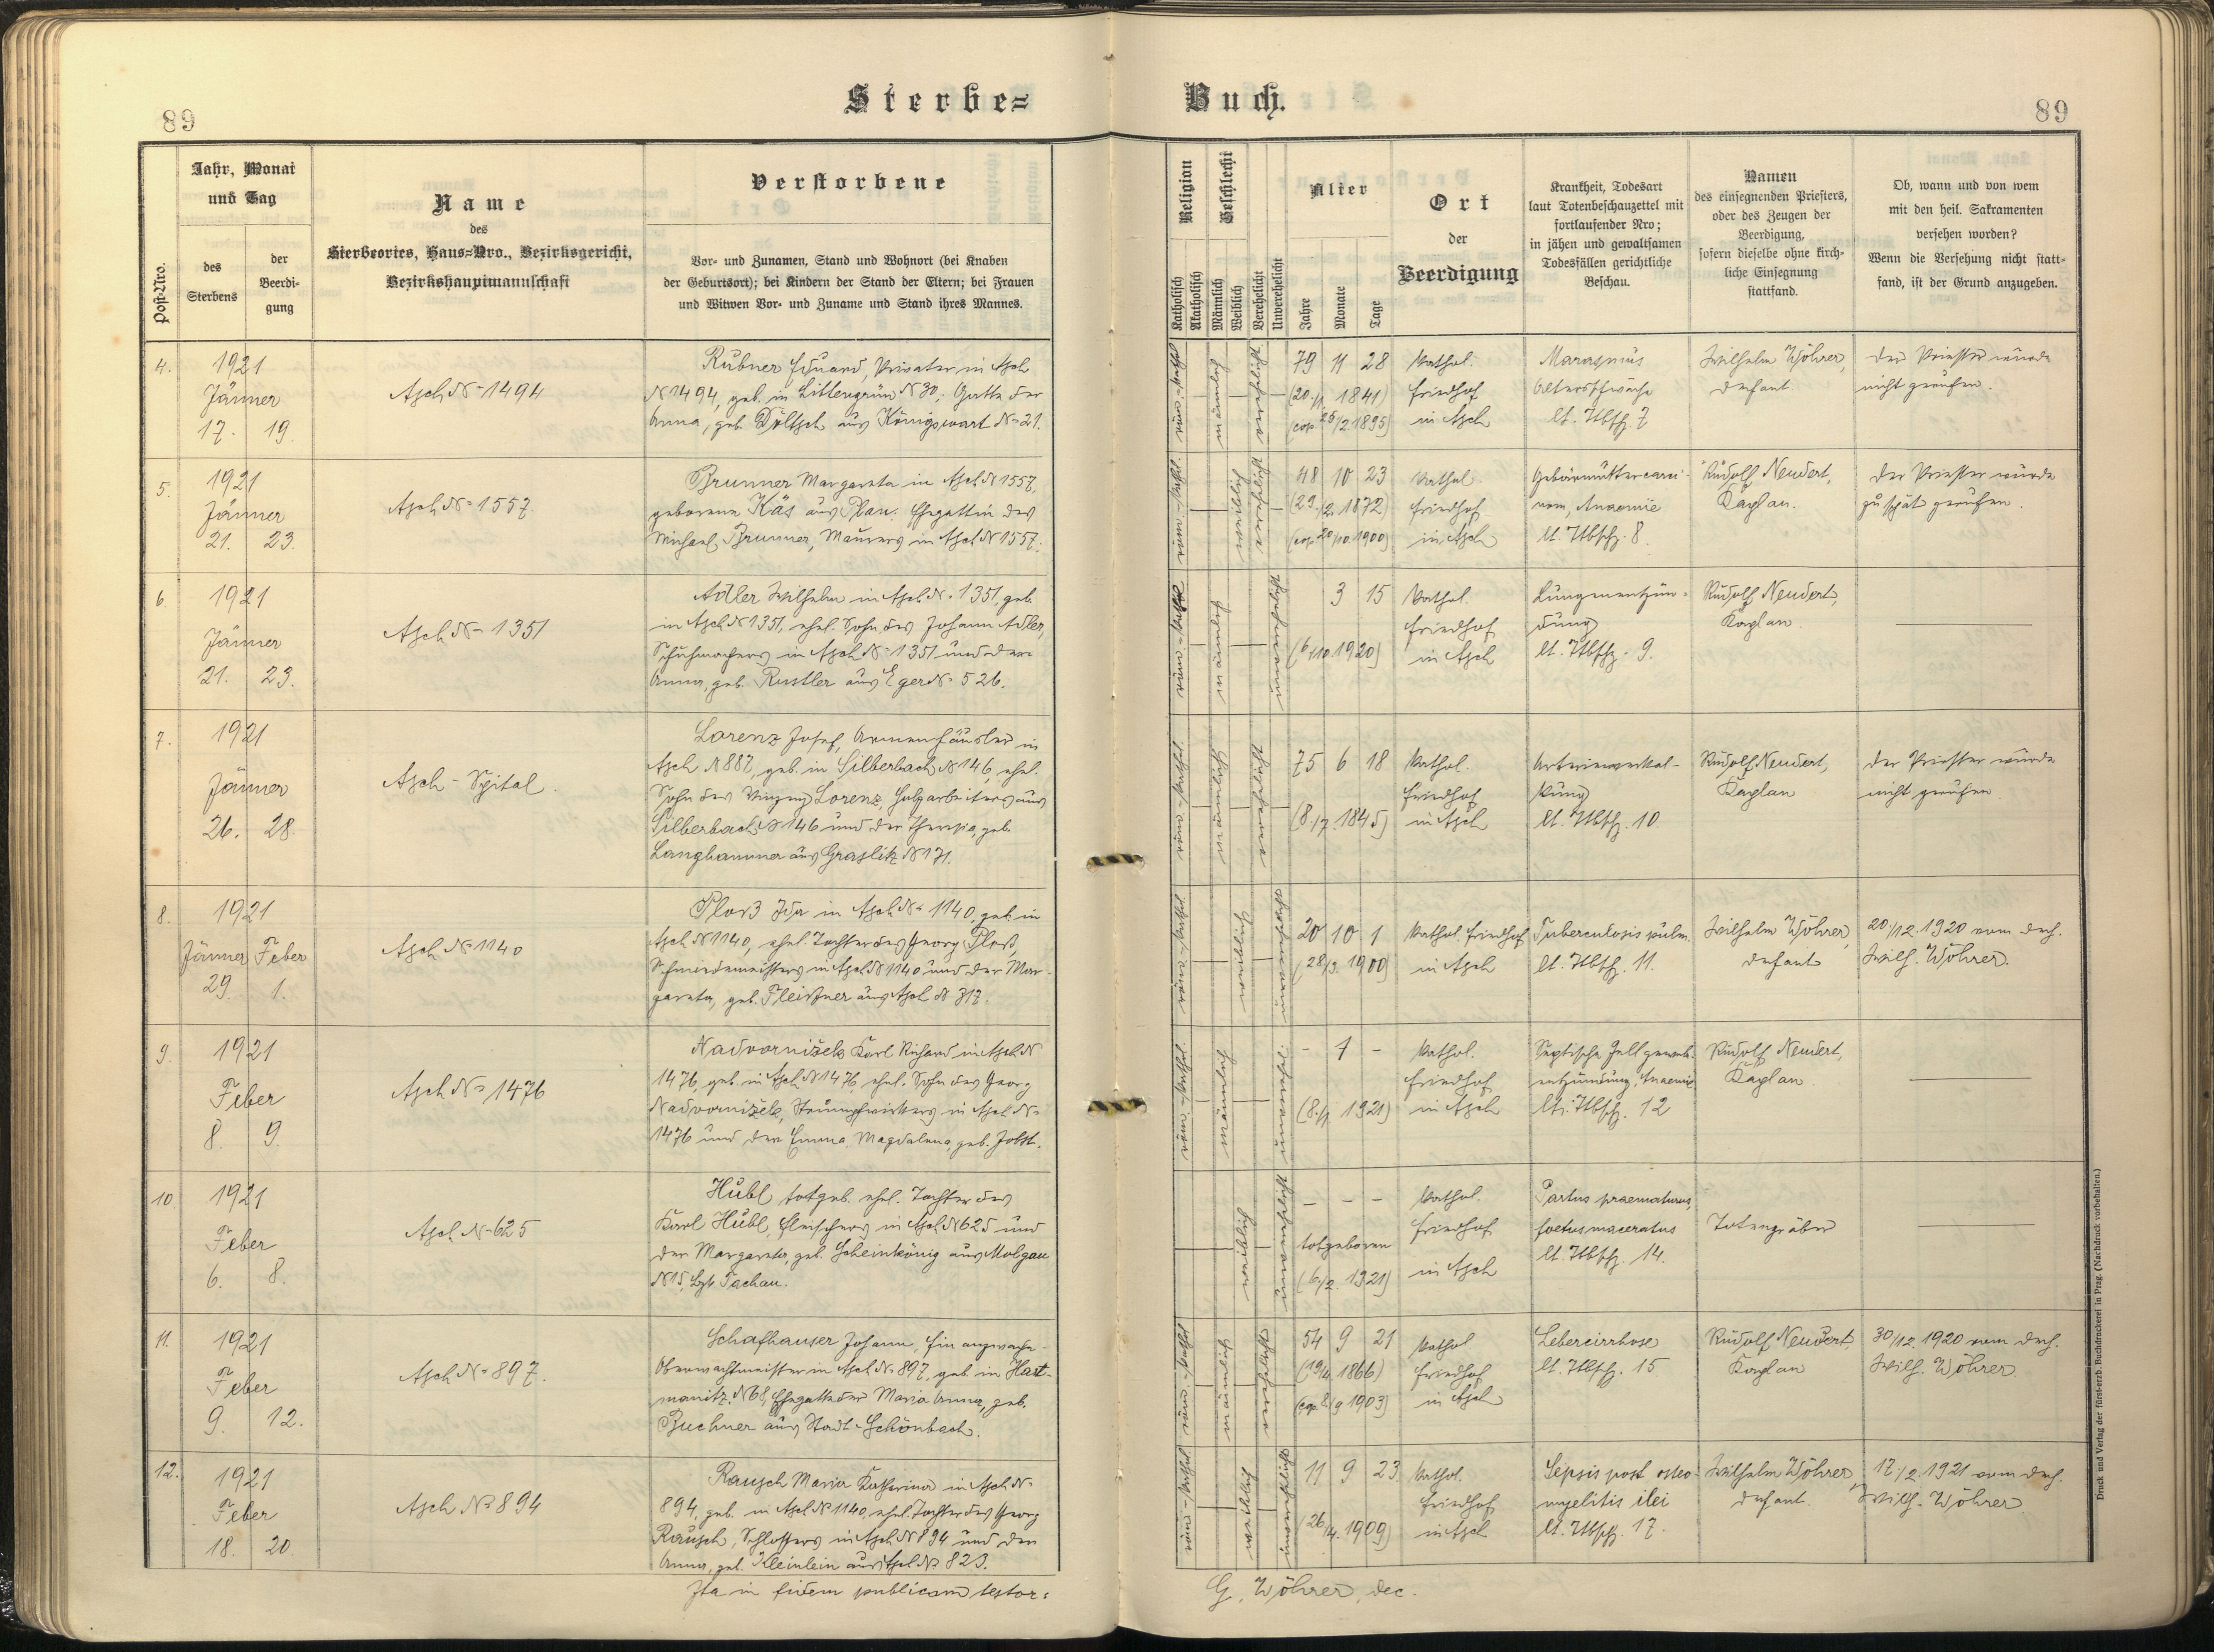 89
Sterbe=
Jahr, Monat
und Tag
Post-Nro.
des
Sterbens
der
Beerdi-
gung
Name
des
Sterbeortes, Haus=Nro., Bezirksgericht,
Bezirkshauptmannschaft
Verstorbene
Vor- und Zunamen, Stand und Wohnort (bei Knaben
der Geburtsort); bei Kindern der Stand der Eltern; bei Frauen
und Witwen Vor- und Zuname und Stand ihres Mannes.
4.
1921
Jänner
17. 19.
Asch № 1494
Rubner Eduard, Privater in Asch
№ 1494, geb. in Littengrün № 30, Gatte der
Anna, geb. Döltsch aus Königswart № 21.
5.
1921
Jänner
21. 23.
Asch № 1557.
Brunner Margareta in Asch № 1557,
geborene Käs aus Plan. Ehegattin des
Michael Brunner, Maurers in Asch № 1557.
6.
1921
Jänner
21. 23.
Asch № 1351
Adler Wilhelm in Asch № 1351, geb.
in Asch № 1351, ehel. Sohn des Johann Adler,
Schuhmachers in Asch № 1351 und der
Anna, geb. Rustler aus Eger № 526.
7.
1921
Jänner
26. 28.
Asch - Spital.
Lorenz Josef, Armenhäusler in
Asch № 887, geb. in Silberbach № 146, ehel.
Sohn des Vinzenz Lorenz, Holzarbeiters aus
Silberbach № 146 und der Theresia, geb.
Langhammer aus Graslitz № 171.
8.
1921
Jänner Feber
29. 1.
Asch № 1140
Ploß Ida in Asch № 1140, geb. in
Asch № 1140, ehel. Tochter des Georg Ploß,
Schmiedemeisters in Asch № 1140 und der Mar-
gareta, geb. Fleißner aus Asch № 317.
9.
1921
Feber
8. 9.
Asch № 1476
Nadvornižek Karl Richard in Asch №
1476, geb. in Asch № 1476, ehel. Sohn des Georg
Nadvornižek, Strumpfwirkers in Asch №
1476 und der Emma Magdalena, geb. Jobst.
10.
1921
Feber
6. 8.
Asch № 625
Hübl totgeb. ehel. Tochter des
Karl Hübl, Fleischers in Asch № 625 und
der Margareta, geb. Scheinkönig aus Molgau
№ 15, Bzk. Tachau.
11.
1921
Feber
9. 12.
Asch № 897.
Schafhauser Johann, Finanzwach-
Oberwachtmeister in Asch № 897, geb. in Hart-
manitz № 68, Ehegatte der Maria Anna, geb.
Buchner aus Stadt-Schönbach.
12.
1921
Feber
18. 20.
Asch № 894
Rausch Maria Katharina in Asch №
894, geb. in Asch № 1140, ehel. Tochter des Georg
Rausch, Schlossers in Asch № 894 und der
Anna, geb. Kleinlein aus Asch № 823.
Ita in fidem publicam testor:
Buch.
89
Religion
Katholisch
Akatholisch
Geschlecht
Männlich
Weiblich
Verehelicht
Unverehelicht
Alter
Jahre
Monate
Tage
Ort
der
Beerdigung
Krankheit, Todesart
laut Totenbeschauzettel mit
fortlaufender Nro;
in jähen und gewaltsamen
Todesfällen gerichtliche
Beschau.
Namen
des einsegnenden Priesters,
oder des Zeugen der
Beerdigung,
sofern dieselbe ohne kirch-
liche Einsegnung
stattfand.
Ob, wann und von wem
mit den heil. Sakramenten
versehen worden?
Wenn die Versehung nicht statt-
fand, ist der Grund anzugeben.
röm.-kathol.
männlich
verehelicht
79 11 28
(20./1. 1841)
(cop. 25/2. 1895)
Kathol.
Friedhof
in Asch
Marasmus
Altersschwäche
lt. Ttbschz. 7
Wilhelm Wöhrer,
Dechant.
Der Priester wurde
nicht gerufen.
röm.-kathol.
weiblich
verehelicht
48 10 23
(29./2. 1872)
(cop. 20/10. 1900)
Kathol.
Friedhof
in Asch
Gebärmuttercarci-
nom, Anaemie
lt. Ttbschz. 8.
Rudolf Neudert,
Kaplan.
Der Priester wurde
zu spät gerufen.
röm.-kathol.
männlich
unverehelicht
3 15
(6./10. 1920)
Kathol.
Friedhof
in Asch
Lungenentzün-
dung
lt. Ttbschz. 9.
Rudolf Neudert,
Kaplan.
röm.-kathol.
männlich
verehelicht
75 6 18
(8./7. 1845)
Kathol.
Friedhof
in Asch
Arterienverkal-
kung
lt. Ttbschz. 10.
Rudolf Neudert,
Kaplan
Der Priester wurde
nicht gerufen.
röm.-kathol.
weiblich
unverehelicht
20 10 1
(28/3. 1900)
Kathol. Friedhof
in Asch
Tuberculosis pulm.
lt. Ttbschz. 11.
Wilhelm Wöhrer,
Dechant
20/12. 1920 vom Dech.
Wilh. Wöhrer.
röm.-kathol.
männlich
unverehel.
- 1 -
(8./1. 1921)
Kathol.
Friedhof
in Asch
Septische Zellgeweb.
entzündung, Anaemie
lt. Ttbschz. 12
Rudolf Neudert,
Kaplan.
weiblich
unverehelicht
- - -
totgeboren
(6/2. 1921)
Kathol.
Friedhof
in Asch
Partus praematurus,
foetus maceratus
lt. Ttbschz. 14.
Totengräber
röm.-kathol.
männlich
verehelicht
54 9 21
(19/4. 1866)
(cop. 8/9 1903)
Kathol.
Friedhof
in Asch
Lebercirrhose
lt. Ttbschz. 15
Rudolf Neudert
Kaplan
30/12. 1920 vom Dech.
Wilh. Wöhrer.
röm.-kathol.
weiblich
unverehelicht
11 9 23
(26/4. 1909)
Kathol.
Friedhof
in Asch
Sepsis post osteo-
myelitis ilei
lt. Ttbschz. 17.
Wilhelm Wöhrer,
Dechant.
17./2. 1921 vom Dech.
Wilh. Wöhrer
G. Wöhrer, dec.
Druck und Verlag der fürst-erzb. Buchdruckerei in Prag. (Nachdruck vorbehalten.)